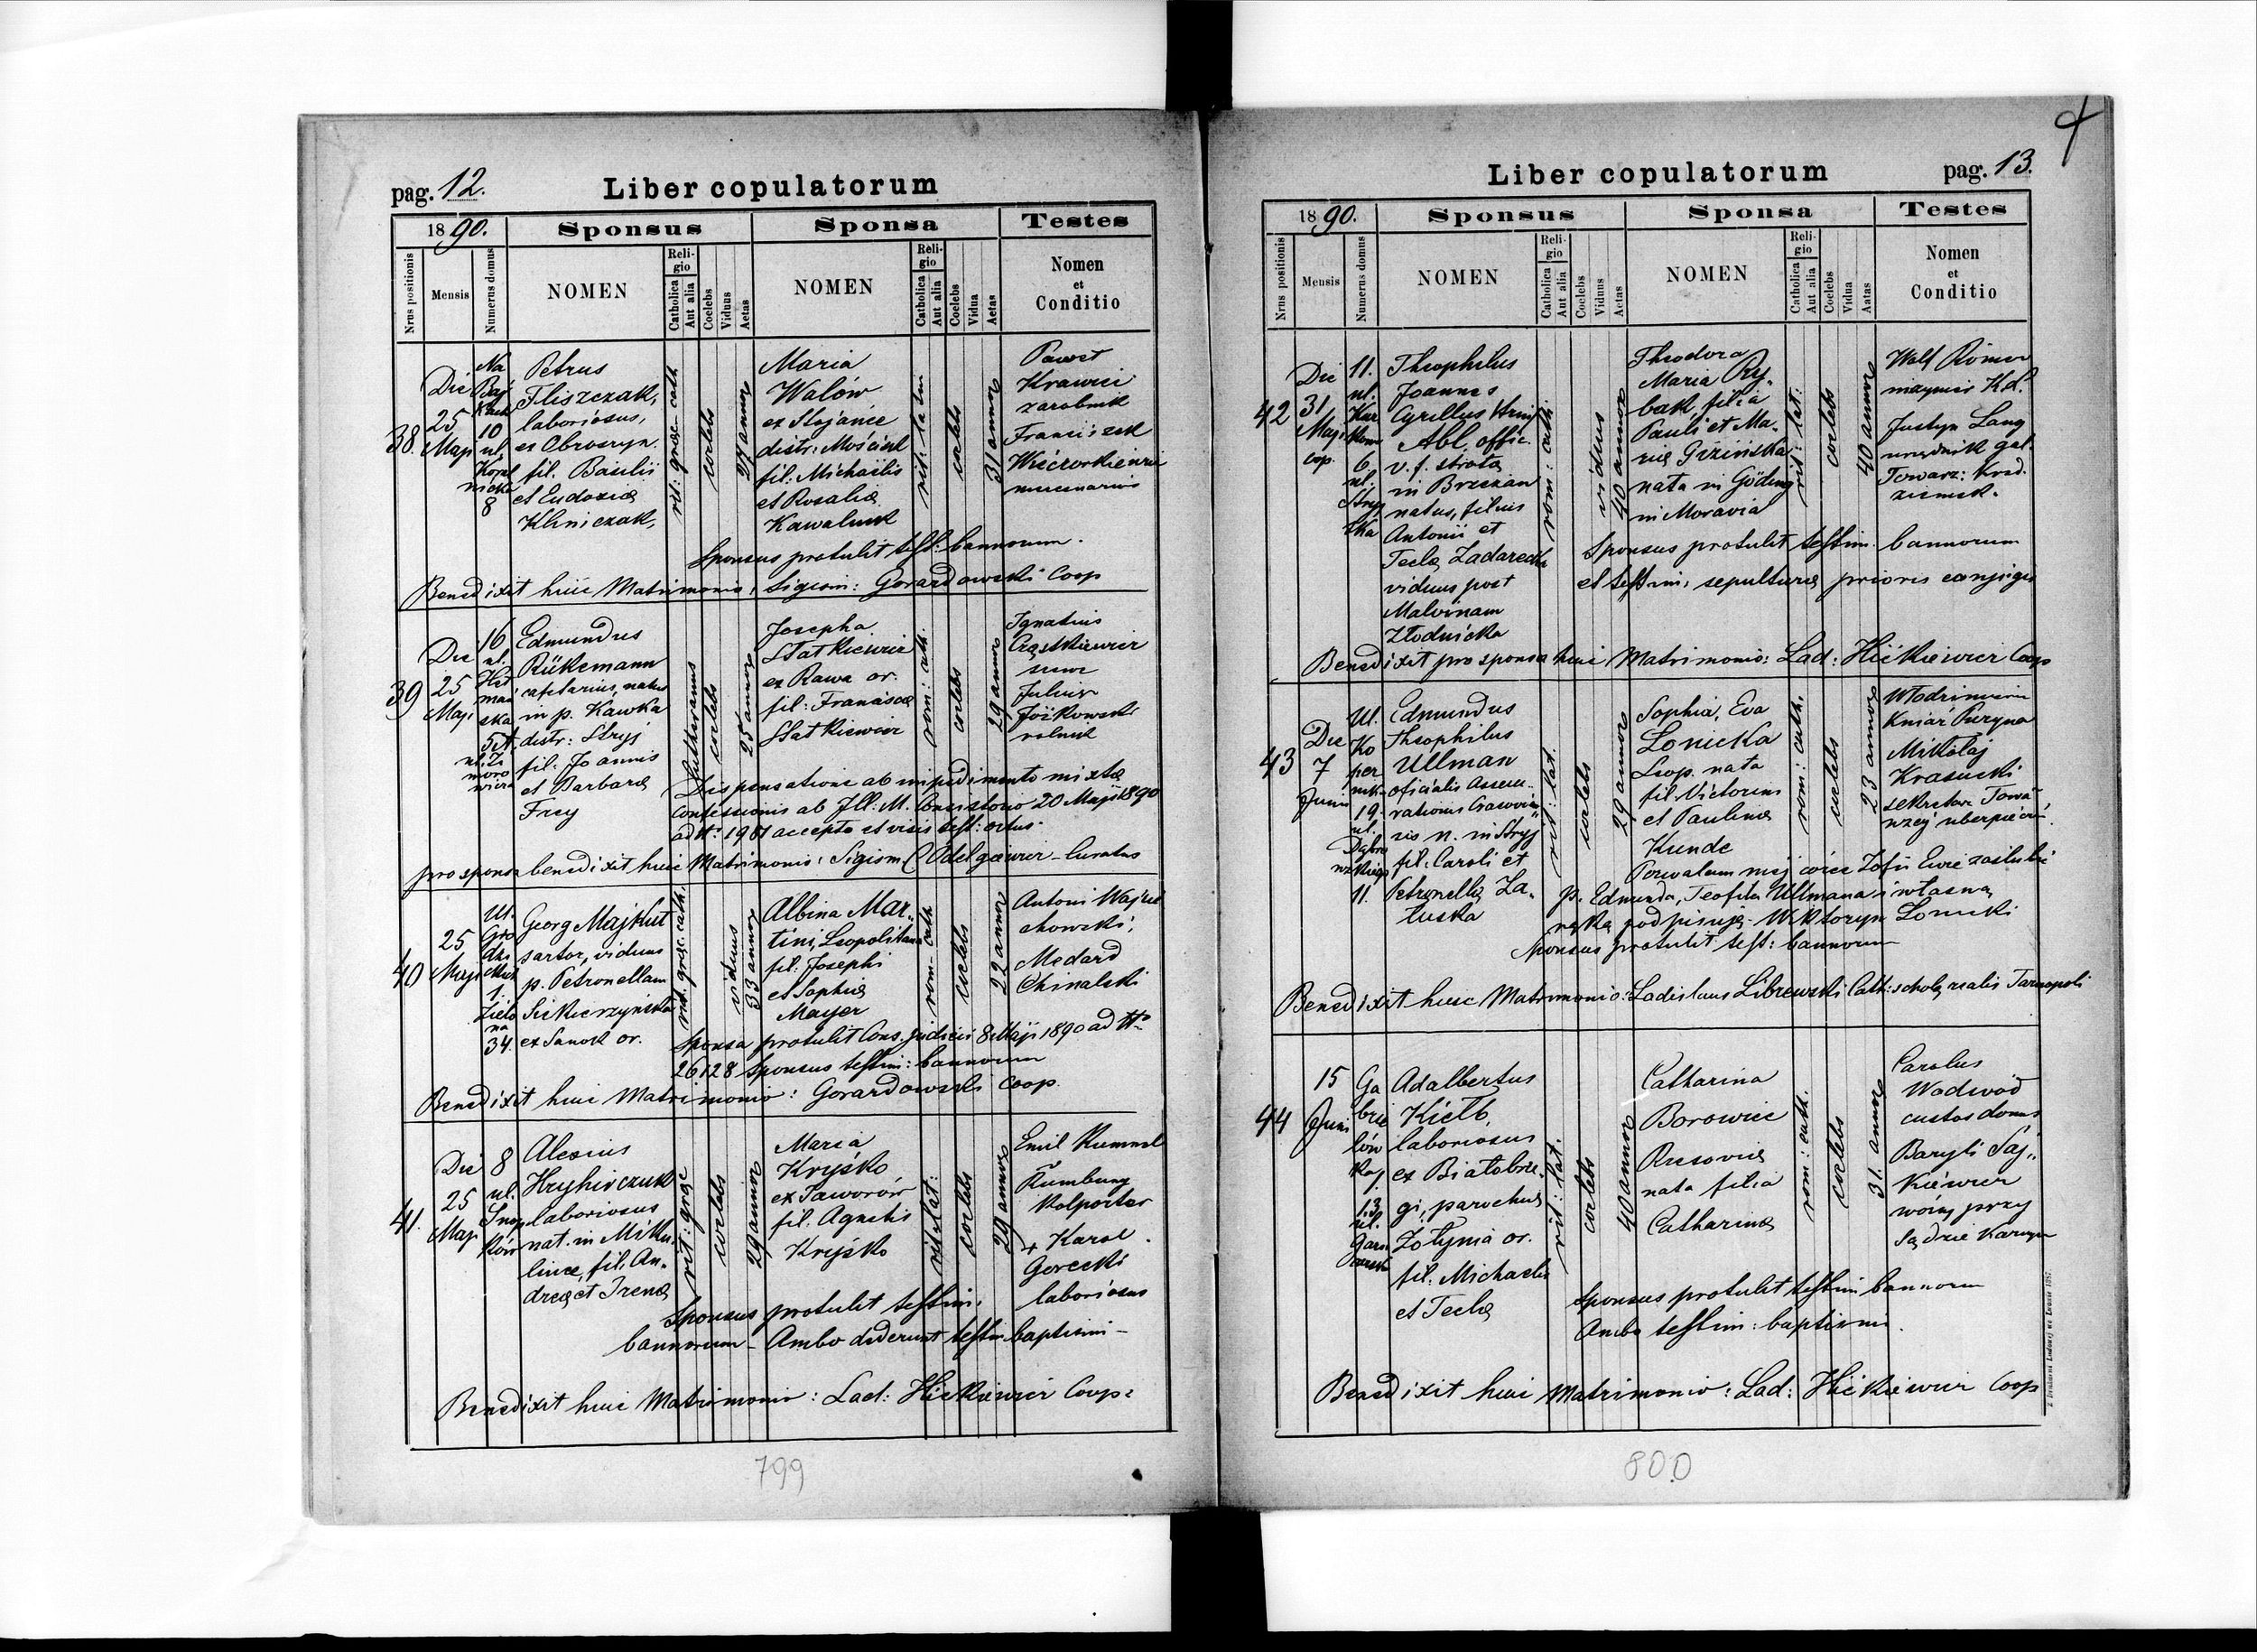 pag. 12.
Liber copulatorum
1890.
Sponsus
Sponsa
Testes
Nrus positionis
Mensis
Numerus domus
NOMEN
Religio
Catholica
Aut alia
Coelebs
Viduus
Aetas
NOMEN
Religio
Catholica
Aut alia
Coelebs
Vidua
Aetas
Nomen
et
Conditio
38.
Die
25
Maji
Na
Baj
10
ul.
8
Petrus
Fliszczak,
laboriosus,
ex Obroszyn.
fil. Basilii
et Eudoxia
Klimczak,
rit: graec. cath
coelebs
27 annor
Maria
Walów
ex Stojańce
distr: Mościsk
fil: Michaëlis
et Rosalia
Kawaluk
rit: latin
coelebs
31 annor
Paweł
Krawiec
zarobnik
Franciszek
Wieczorkiewicz
mercenarius
Sponsus protulit test: bannorum.
Benedixit huic Matrimonio: Sigism: Gorazdowski Coop
39
Die
25
Maji
16
ul.
Het
mań
ska
Edmundus
Rükemann
cafetarius, natus
in p. Kawka
distr: Stryj
fil: Joannis
et Barbara
Frey
Lutheranus
coelebs
25 annor
Josepha
Statkiewicz
ex Rawa or.
fil: Francisca
Statkiewicz
rom: cath.
coelebs
29 annor
Ignatius
Cząstkiewicz
szewc
Julius
Jóżkowski
rolnik
Dispensatione ab impedimento mixta
confessionis ab Ill: M. Consistorio 20 Maji 1890
ad N: 1981 accepta et visis test: ortus.
pro sponsa benedixit huic Matrimonio: Sigism Odelgiewicz - Curatus
40
25
Maji
Ul.
Gro
dzi
ckich
1.
Zielo
na
34.
Georg Majkut
sartor, viduus
p. Petronellam
Siekierzyńska
ex Sanok or.
rit. graec. cath.
viduus
33 annor
Albina Mar-
tini, Leopolitana
fil: Josephi
et Sophia
Mayer
rom- cath
coelebs
22 annor
Antoni Wajce
chowski,
Medard
Chinalski
Sponsa protulit Cons. judicii 8 Maji 1890 ad No
26128 Sponsus testim: bannorum
Benedixit huic Matrimonio: Gorazdowski Coop.
41.
Die
25
Maji
8
ul.
Snop
ków
Alexius
Hryhorczuk
laboriosus
nat. in Miku-
lince, fil: An-
drea et Irena
rit: graec
coelebs
29 annor
Maria
Kryśko
ex Jaworów
fil. Agnetis
Kryśko
rit: lat:
coelebs
29 annor
Emil Kummel
Rumburg
Kolporter
+ Karol
Gorecki
laboriosus
Sponsus protulit testim:
bannorum - Ambo dederunt testim baptismi -
Benedixit huic Matrimonio: Lad: Hićkiewicz Coop:
799
pag. 13.
Liber copulatorum
1890.
Sponsus
Sponsa
Testes
Nrus positionis
Mensis
Numerus domus
NOMEN
Religio
Catholica
Aut alia
Coelebs
Viduus
Aetas
NOMEN
Religio
Catholica
Aut alia
Coelebs
Vidua
Aetas
Nomen
et
Conditio
42
Die
31
Maji
cop.
11.
ul.
6.
ul.
Stryj
ska
Theophilus
Joannes
Cyrillus
Abl. offic.
v. f. strata
in Brzeżan
natus, filius
Antonii et
Tecla Zadarecka
viduus post
Malvinam
Złodnicka
rom: cath
viduus
40 annor
Theodora
Maria Ry-
bak, filia
Pauli et Ma-
ria Griżińska
nata in Göding
in Moravia
rit: lat:
coelebs
40 annor
Wolf Römer
Justyn Lang
urzędnik gal.
Towarz: Kred.
ziemsk.
Sponsus protulit testim. bannorum
et testim: sepultura prioris conjugis
Benedixit pro sponsa huic Matrimonio: Lad: Hićkiewicz Coop
43
Die
7
Junii
Ul.
Ko
per
nika
19.
ul.
Dąbro
wskiego
11.
Edmundus
Theophilus
Ullman
oficialis Assecu-
rationis Cracovien
sis n. in Stryj
fil: Caroli et
Petronella Za-
łuska
rit: lat.
coelebs
29 annor
Sophia, Eva
Łonicka
Leop. nata
fil: Victorini
et Paulina
Kunde
rom: cath.
coelebs
23 annor
Włodzimierz
Kniaź Puzyna
Mikołaj
Krasucki
sekretarz Towa
rzy ubezpieczeń
Pozwalam mej córce Zofii Ewie zaślubić
p. Edmunda, Teofila Ullmana i własną
ręką podpisuję - Wiktoryn Łonicki
Sponsus protulit test: bannorum
Benedixit huic Matrimonio: Ladislaus Librewski Cath: schola realis Tarnopoli
44
15
Junii
Ga
brie
lów
ka
13.
ul.
Adalbertus
Kiełb,
laboriosus
ex Białobrze-
gi, parochia
Żołynia or.
fil: Michaelis
et Tecla
rit: lat.
coelebs
40 annor
Catharina
Borowiec
Resovia
nata filia
Catharina
rom: cath.
coelebs
31. annor
Carolus
Wodwód
custos domus
Baryli Saj-
kiewicz
woźny przy
Sądzie Karnym
Sponsus protulit testim bannorum
Ambo testim: baptismi.
Benedixit huic Matrimonio: Lad: Hićkiewicz Coop
Z Drukarni Ludowej we Lwowie 1887.
800